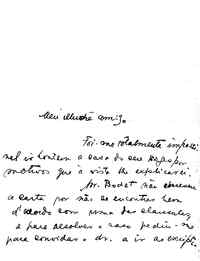 Meu illustre amigo.
Foi-me totalmente impossi
vel ir hontem a casa do seu
motivos que à vista lhe explicarei.
Dr. Bodet não
a carta por não se encontrar bem
d'acordo com uma das clausulas,
e para resolver o caso pediu-me
para convidar o dr. a ir ao